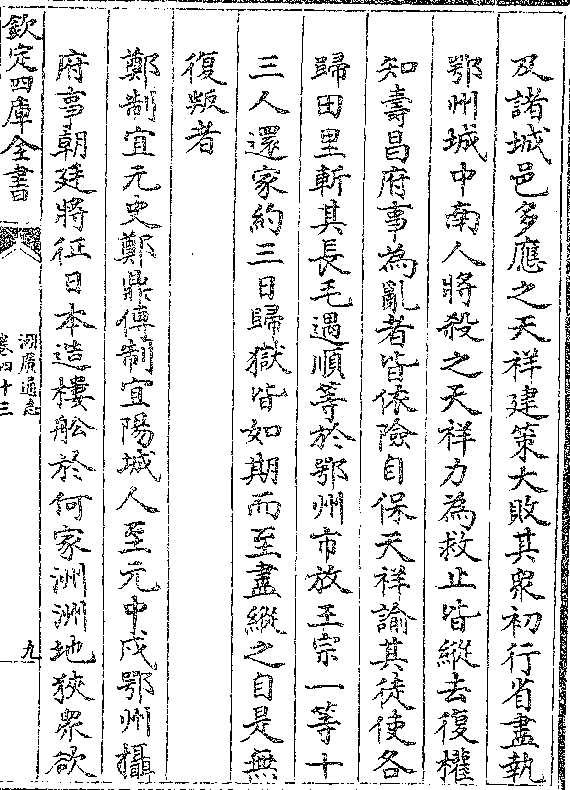 及諸城邑多應之天祥建策大敗其衆初行省盡執
鄂州城中南人將殺之天祥力為救止皆縱去復權
知壽昌府事為亂者皆依險自保天祥諭其徒使各
歸田里斬其長毛遇順等於鄂州市放王宗一等十
三人還家約三日歸獄皆如期而至盡縱之自是無
復叛者
鄭制宜元史鄭鼎傳制宜陽城人至元中戍鄂州攝
府事朝廷將征日本造樓船於何家洲洲地狹衆欲
欽定四庫全書
湖廣通志
卷四十三
九